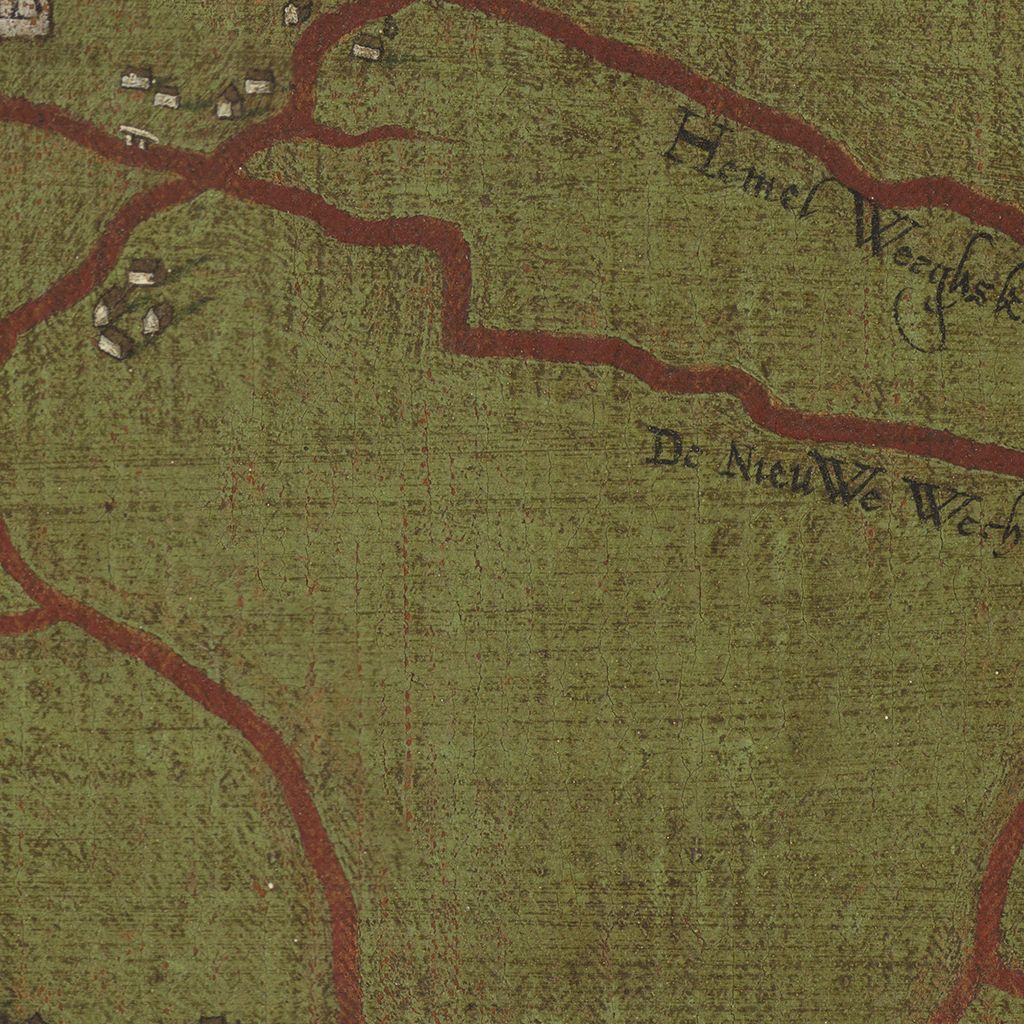 Hemel Weeghsk
De NieuWe Wech